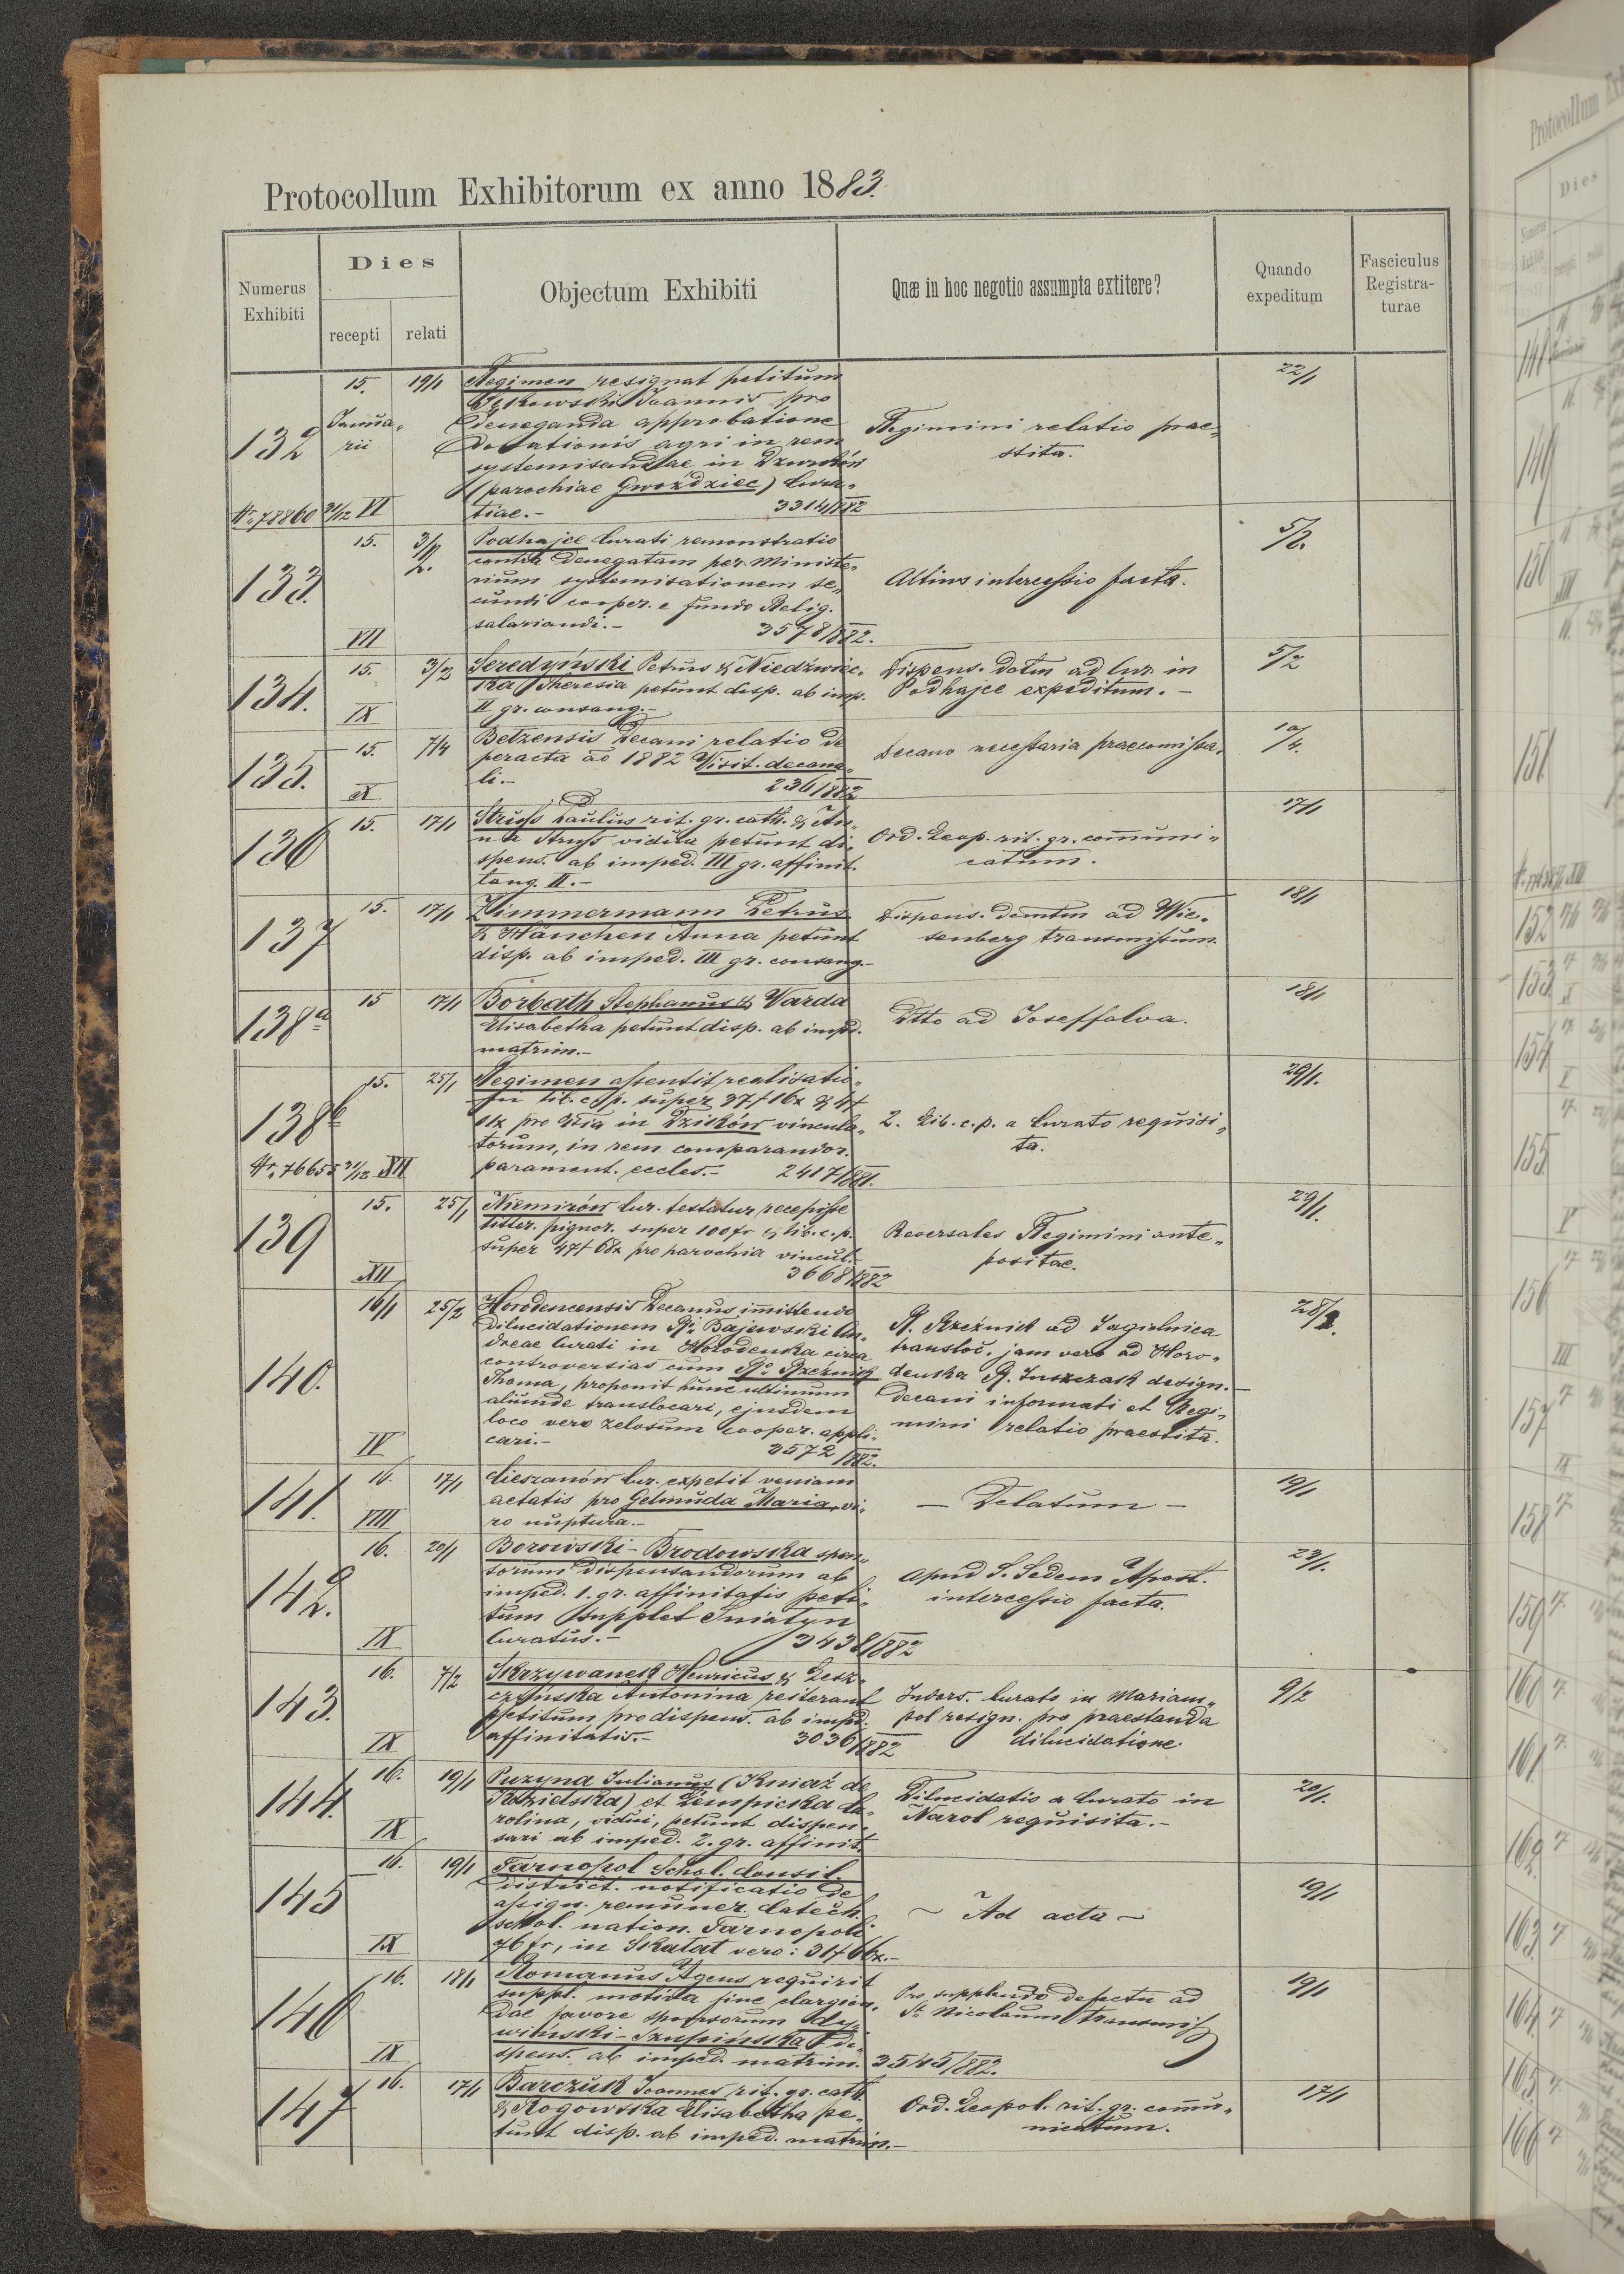 Protocollum Exhibitorum ex anno 1883.
Numerus Exhibiti
Dies
recepti
relati
Objectum Exhibiti
Quæ in hoc negotio assumpta extitere?
Quando expeditum
Fasciculus Registraturae
132
15. Januarii
19/1
Regimen resignat petitum
Joannis pro
deneganda approbatione
dotationis agri in rem
systemisandae in
(parochiae Gwoździec) Cura-
tiae.- 3314/882
Regimini relatio prae-
stita.
22/1
Nr. 78860 31/12 VI
133.
15.
3/2.
Podhajce Curati remonstratio
contra denegatam per Ministe-
rium systemisationem se-
cundi cooper. e fundo Relig.
salariandi.- 3578/882.
Altius intercessio facta.
5/2.
VII
134.
15.
3/2
Seredyński Petrus & Niedźwiec-
ka Theresia petunt disp. ab imp.
II gr. consang.-
Dispens. datm ad Cur. in
Podhajce expeditum.-
5/2
IX
135.
15.
7/4
Belzensis Decani relatio de
peracta ao 1882 Visit. decana-
li.- 236/882
Decano necessaria praecomissa.
10/4.
X
136
15.
17/1
Struss Paulus rit. gr. cath. & An-
na Struss vidua petunt di-
spens. ab imped. III gr. affinit.
tang. II.-
Ord. Leop. rit. gr. communi-
catum.
17/1
137
15.
17/1
Zimmermann Petrus
& Hänchen Anna petunt
disp. ab imped. III gr. consang.-
Dispens. demtm ad Wie-
senberg transmissum.
18/1
138a
15
17/1
Borbath Stephanus & Varda
Elisabetha petunt disp. ab impd.
matrim.-
Dtto ad Joseffalva.
18/1
138b
15.
25/1
Regimen assentit realisatio-
ni lib. c. p. super 37f 16x & 4f
11x pro Ecclia in Dzików vincula-
torum, in rem comparandor.
parament. eccles.- 2417/881.
2. Lib. c. p. a Curato requisi-
ta.
29/1.
Nr. 76655 31/12 XII
139
15.
25/1
Niemirów Cur. testatur recepisse
litter. pignor. super 100 fr & lib. c. p.
super 47f 68x pro parochia vincul.-
3668/882
Reversales Regimini ante-
positae.
29/1.
XII
140.
16/1
25/2
Horodencensis Decanus immittendo
dilucidationem Rdi Bajewski An-
dreae Curati in Horodenka circa
controversias cum Rdo Rzeźnik
Thoma, proponit hunc ultimum
aliunde translocari, ejusdem
loco vero zelosum cooper. appli-
cari.- 3572/882.
R. Rzeźnik ad Jagielnica
transloc. jam vero ad Horo-
denka R. Juszczak design.-
Decani informati et Regi-
mini relatio praestita.
28/2.
IV
141.
16.
17/1
Cieszanów Cur. expetit veniam
aetatis pro Gelmuda Maria, vi-
ro nuptura.-
— Delatum —
19/1
VIII
142.
16.
20/1
Borowski-Brodowska spon-
sorum dispensandorum ab
imped. 1. gr. affinitatis peti-
tum supplet Sniatyn
Curatus.- 3438/882
Apud S. Sedem Apost.
intercessio facta.
23/1.
IX
143.
16.
7/2
Skrzywanek Henricus & Lesz-
czyńska Antonina reiterant
petitum pro dispens. ab impd.
affinitatis.- 3036/882
Indors. Curato in Mariam-
pol resign. pro praestanda
dilucidatione.
9/2
IX
144.
16.
19/1
Puzyna Julianus (Kniaź de
Kozielsko) et Zempicka Ca-
rolina, vidui, petunt dispen-
sari ab imped. 2. gr. affinit.
Dilucidatio a Curato in
Narol requisita.-
20/1.
IX
145
16.
19/1
Tarnopol Schol. Consil.
district. notificatio de
assign. remuner. Catech.
schol. nation. Tarnopoli
76 fr, in Skałat vero: 31f 66x.-
~ Ad acta ~
19/1
IX
146
16.
18/1
Romanus Agens requirit
suppl. motiva fine elargien-
dae favore sponsorum
di-
spens. ab imped. matrim. 3545/882.
Pro supplendo defectu ad
St. Nicolaum transmiss
19/1
IX
147
16.
17/1
Barczuk Joannes rit. gr. cath.
& Rogowska Elisabetha pe-
tunt disp. ab imped. matrim.-
Ord. Leopol. rit. gr. commu-
nicatum.
17/1
Protocollum
Dies
148
149
150
151
152
153
154
155
156
157
158
159
160
161
162
163
164
165
166